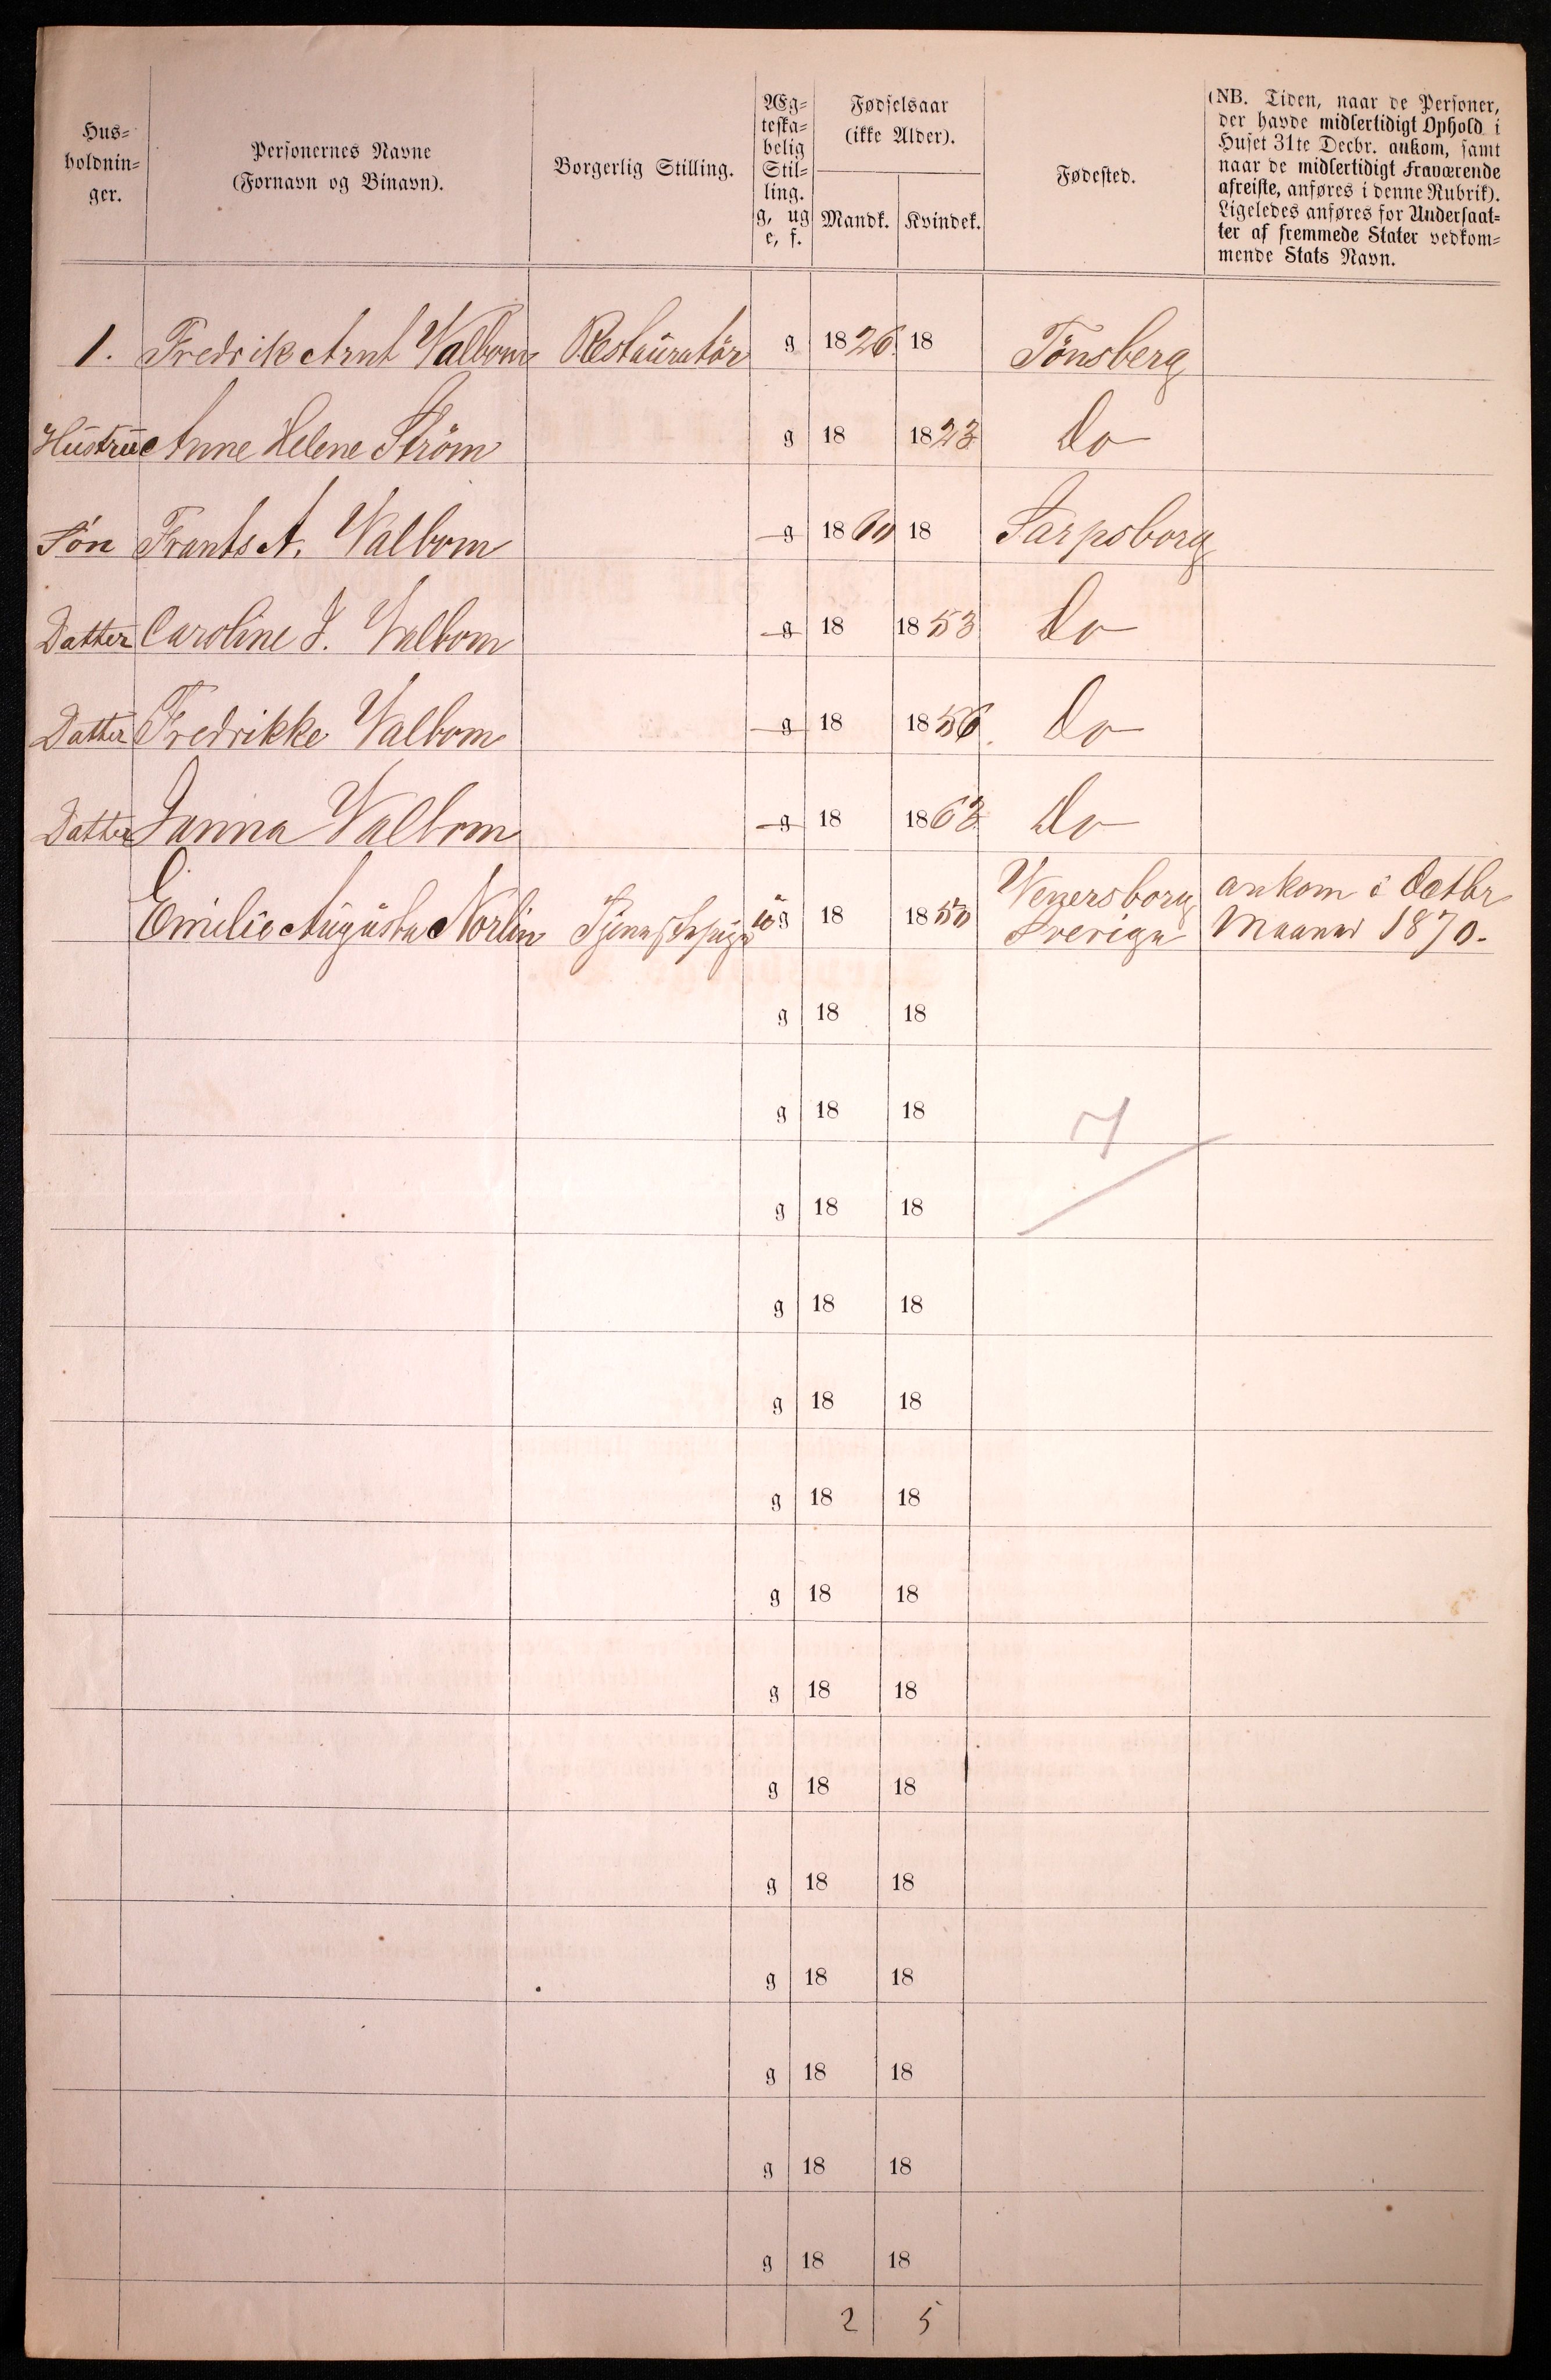 Hus-
holdnin-
ger.
Personernes Navne
(Fornavn og Binavn).
Borgerlig Stilling.
Æg-
teska-
belig
Stil-
ling.
g, ug
e, f.
Fødselsaar
(ikke Alder).
Mandk. Kvindek.
Fødested.
(NB. Tiden, naar de Personer,
der havde midlertidigt Ophold i
Huset 31te Decbr. ankom, samt
naar de midlertidigt Fraværende
afreiste, anføres i denne Rubrik).
Ligeledes anføres for Undersaat-
ter af fremmede Stater vedkom-
mende Stats Navn.
1. Fredrik Arnt Walbom Restauratör g 1826 18 Tönsberg
Hustrue Anne Helene Ström g 18 1823 Do
Sön Frants A. Walbom g 1860 18 Sarpsborg
Datter Caroline J. Walbom g 18 1853 Do
Datter Fredrikke Walbom g 18 1856 Do
Datter Janna Walbom g 18 1863 Do
Emilie Augusta Norlin ug 18 1850 Wenersborg Sverige ankom i Octbr Maaned 1870.
g 18 18
g 18 18
7
g 18 18
g 18 18
g 18 18
g 18 18
g 18 18
g 18 18
g 18 18
g 18 18
g 18 18
g 18 18
g 18 18
g 18 18
2 5